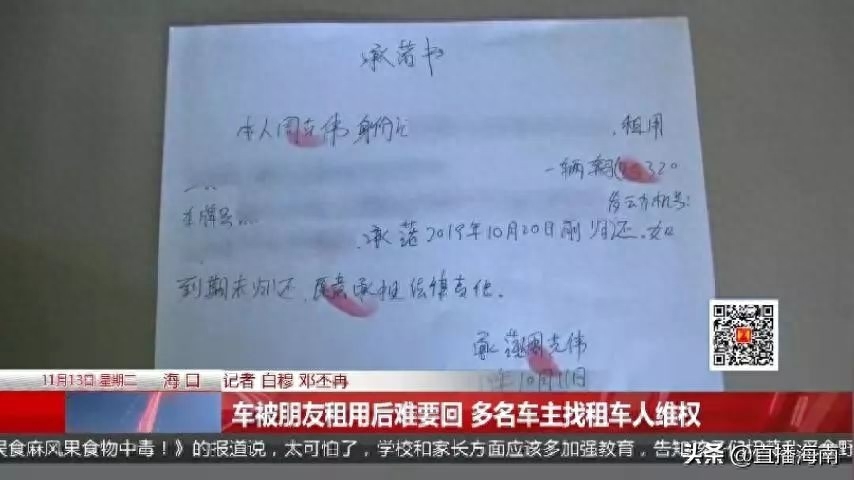 承诺书
本人周克伟身份证
租用
一辆
320
车牌号
发动机号:
承诺2019年10月20日前归还.如
到期未归还,愿意承担法律责任。
承诺周克伟
年10月11日
11月13日 星期二 海口 记者 白穆 邓丕冉
车被朋友租用后难要回 多名车主找租车人维权
食麻风果食物中毒!》的报道说,太可怕了,学校和家长方面应该多加强教育,告知孩子们
头条 @直播海南